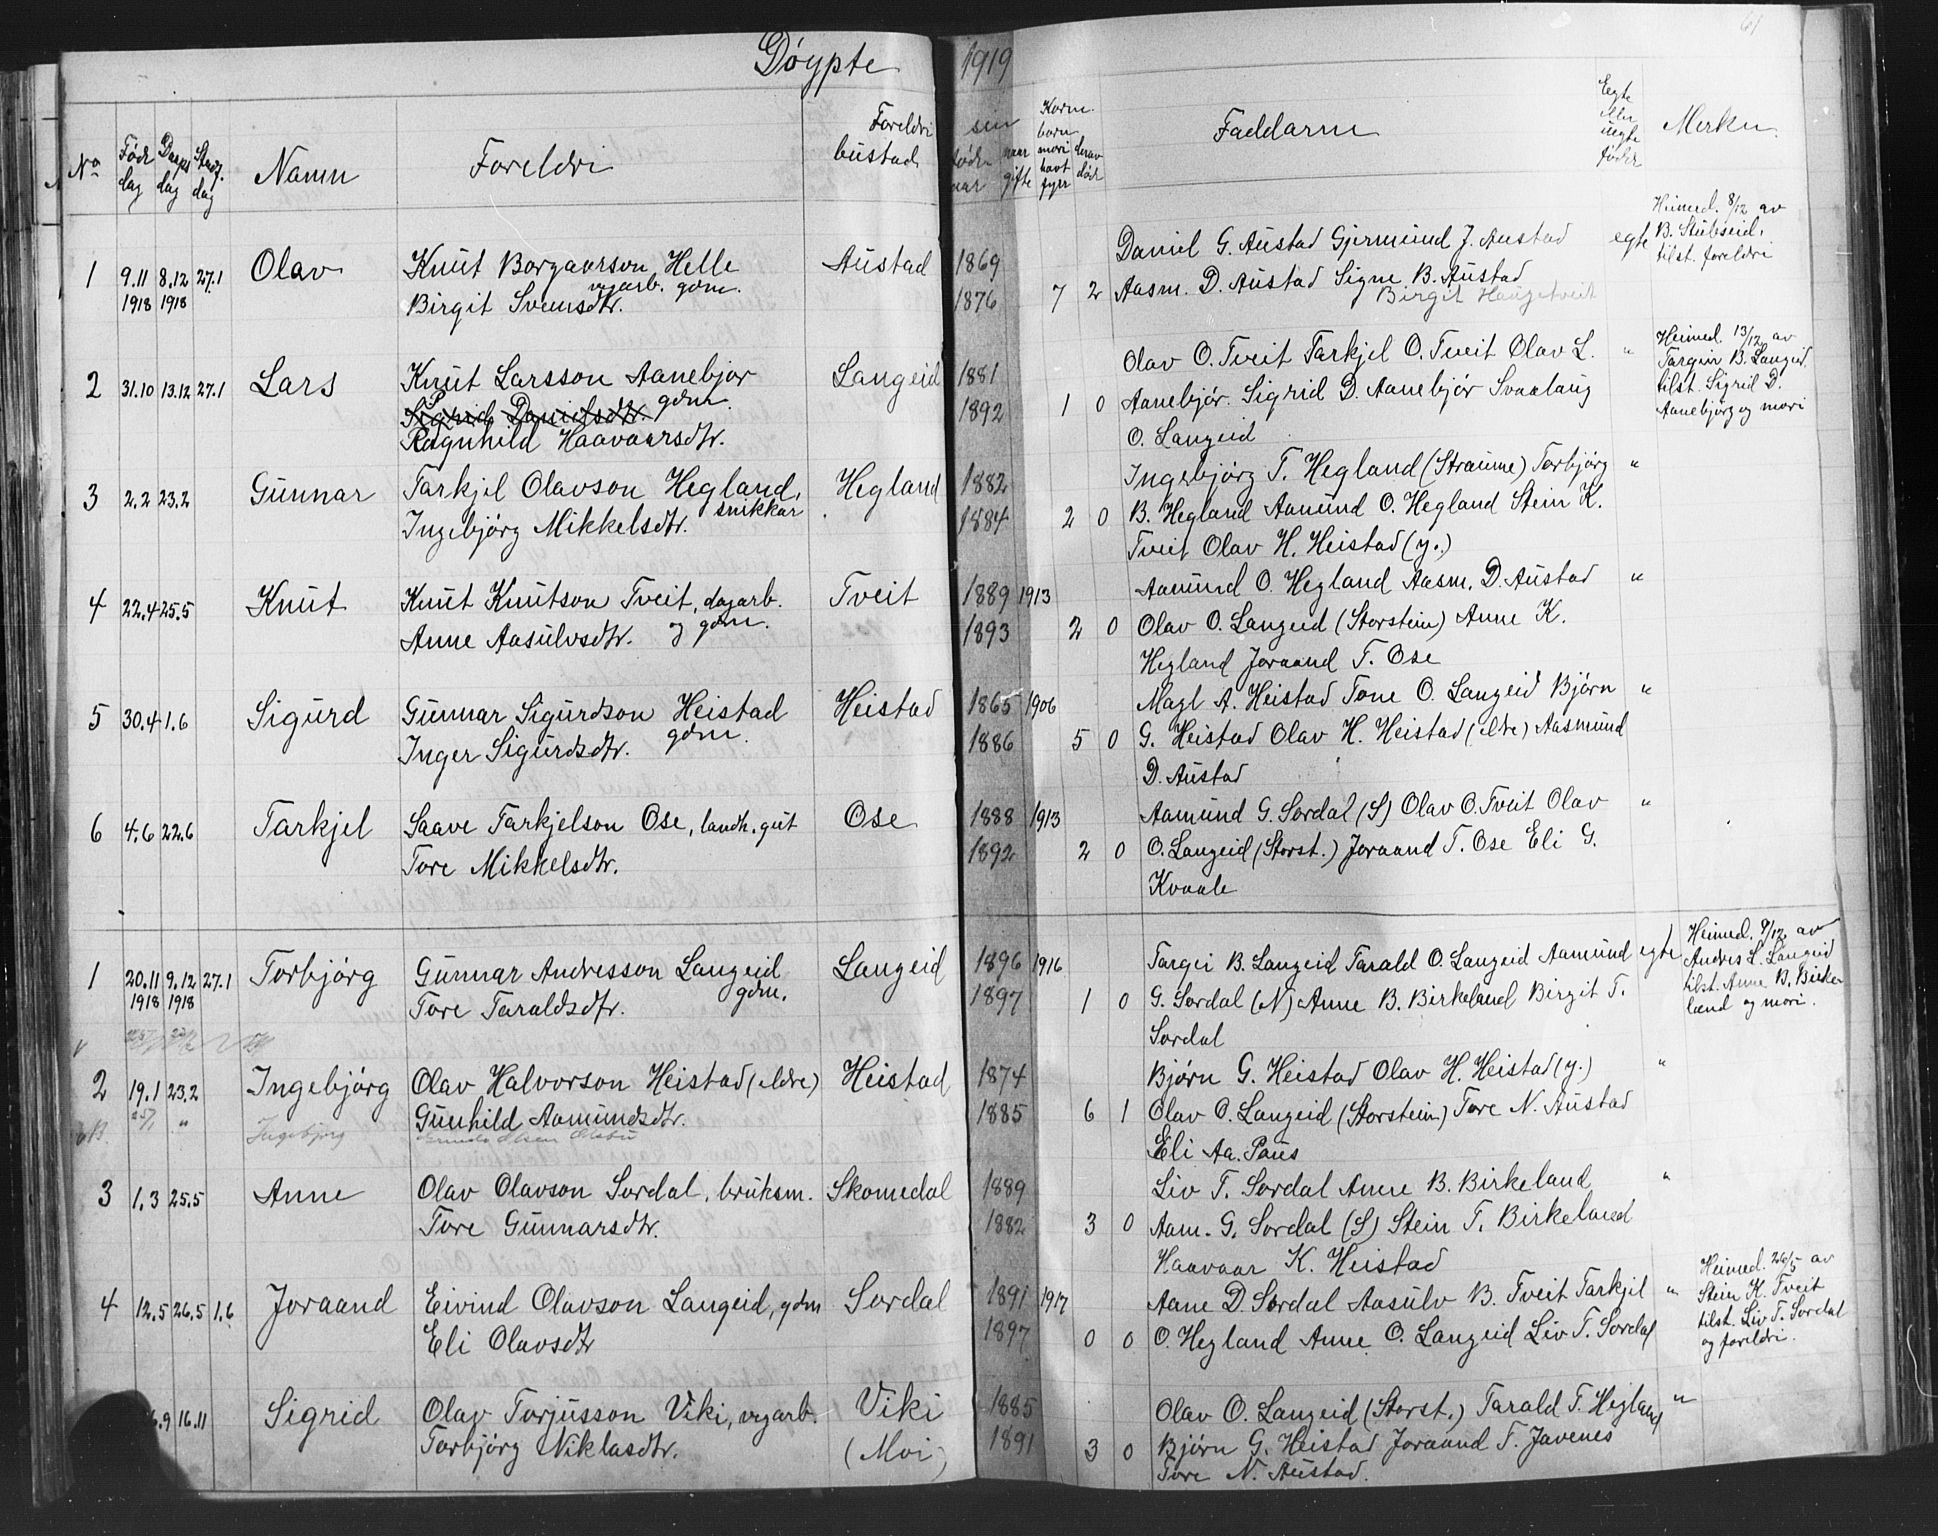 Döypte 1919
61
No Födedag Daapsdag Stadf. dag Namn Foreldri Foreldri bustad sin föde aar naar gifte Korm. born mori havt fyrr derav död Faddarm Egte elder uegte föder Merken.
1 9.11 1918 8.12 1918 27.1 Olav Knut Borgaarson Helle Austad 1869 Daniel G. Austad Gjermund J. Austad egte Heimed. 8/12 av
vegarb. gdm. B. Stubseid,
Birgit Svensdtr. 1876 7 2 Aasm. D. Austad Signe B. Austad tilst. foreldri
Birgit Haugetveit
2 31.10 13.12 27.1 Lars Knut Larsson Aanebjor Langeid 1881 Olav O. Tveit Tarkjel O. Tveit Olav L. " Heimed. 13/12 av
gdm. Targeir B. Langeid
Sigrid Danielsdtr. 1892 1 0 Aanebjör. Sigrid D. Aanebjör Svaalaug tilst. Sigrid D.
Ragnhild Haavaarsdtr. O. Langeid Aanebjørg og mori
3 2.2 23.2 Gunnar Tarkjel Olavson Hegland, Hegland 1882 Ingebjörg T. Hegland (Straume) Torbjörg "
snikkar
Ingebjörg Mikkelsdtr. 1884 2 0 B. Hegland Aamund O. Hegland Stein K.
Tveit Olav H. Heistad (y.)
4 22.4 25.5 Knut Knut Knutson Tveit, dagarb. Tveit 1889 1913 Aamund O. Hegland Aasm. D. Austad "
og gdm.
Anne Aasulvsdtr. 1893 2 0 Olav O. Langeid (Storstein) Anne K.
Hegland Joraand T. Ose
5 30.4 1.6 Sigurd Gunnar Sigurdson Heistad Heistad 1865 1906 Magl A. Heistad Tone O. Langeid Björn "
gdm.
Inger Sigurdsdtr. 1886 5 0 G. Heistad Olav H. Heistad (eldre) Aasmund
D. Austad
6 4.6 22.6 Tarkjel Saave Tarkjelson Ose, landh. gut Ose 1888 1913 Aamund G. Sordal (S) Olav O. Tveit Olav "
Tore Mikkelsdtr. 1892 2 0 O. Langeid (Storst.) Joraand T. Ose Eli G.
Kvaale
1 20.11 1918 9.12 1918 27.1 Torbjörg Gunnar Andresson Langeid Langeid 1896 1916 Targei B. Langeid Tarald O. Langeid Aamund egte Heimed. 9/12 av
gdm. Andres L. Langeid
Tore Taraldsdtr. 1897 1 0 G. Sordal (N) Anne B. Birkeland Birgit T. tilst. Anne B. Birke-
Sordal land og mori.
2 19.1 23.2 Ingebjörg Olav Halvorson Heistad (eldre) Heistad 1874 Björn G. Heistad Olav H. Heistad (y.) "
Gunhild Aamundsdtr. 1885 6 1 Olav O. Langeid (Storstein) Tore N. Austad
Ingebjörg Eli Aa. Paus
3 1.3 25.5 Anne Olav Olavson Sordal, bruksm. Skomedal 1889 Liv T. Sordal Anne B. Birkeland "
Tore Gunnarsdtr. 1882 3 0 Aam. G. Sordal (S) Stein T. Birkeland
Haavaar K. Heistad
4 12.5 26.5 1.6 Joraand Eivind Olavson Langeid, gdm Sordal 1891 1917 Aane D. Sordal Aasulv B. Tveit Tarkjel " Heimed. 26/5 av
Stein K. Tveit
Eli Olavsdtr 1897 0 0 O. Hegland Anne O. Langeid Liv T. Sordal tilst. Liv T. Sordal
og foreldri.
6.9 16.11 Sigrid Olav Torjusson Viki, vegarb. Viki 1885 Olav O. Langeid (Storst.) Tarald T. Hegland "
Torbjörg Niklasdtr. (Moi) 1891 3 0 Björn G. Heistad Joraand T. Javenes
Tore N. Austad.